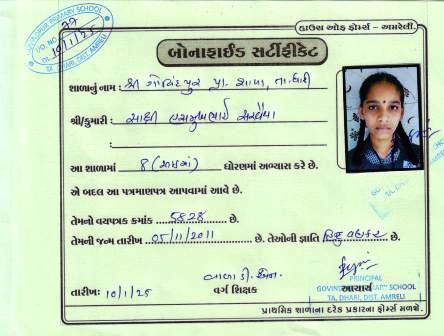 PRIMARY SCHOOL
NO. 77
10/1/25
TA. DHARI, DIST. AMRELI
હાઉસ ઓફ ફોર્મ્સ - અમરેલી.
બોનાફાઈડ સર્ટીફીકેટ
શાળાનું નામ : શ્રી ગોવિંદપુર પ્રા. શાળા, તા. ધારી
શ્રી/કુમારી :
આ શાળામાં 8 ધોરણમાં અભ્યાસ કરે છે.
એ બદલ આ પત્રમાણપત્ર આપવામાં આવે છે.
તેમનો વયપત્રક ક્રમાંક 5828 છે.
તેમની જન્મ તારીખ 05/11/2011 છે. તેઓની જ્ઞાતિ હિન્દુ છે.
તારીખ: 10/1/25
વર્ગ શિક્ષક
આચાર્ય
PRINCIPAL
SCHOOL
TA. DHARI, DIST. AMRELI
પ્રાથમિક શાળાના દરેક પ્રકારના ફોર્મ્સ મળશે.